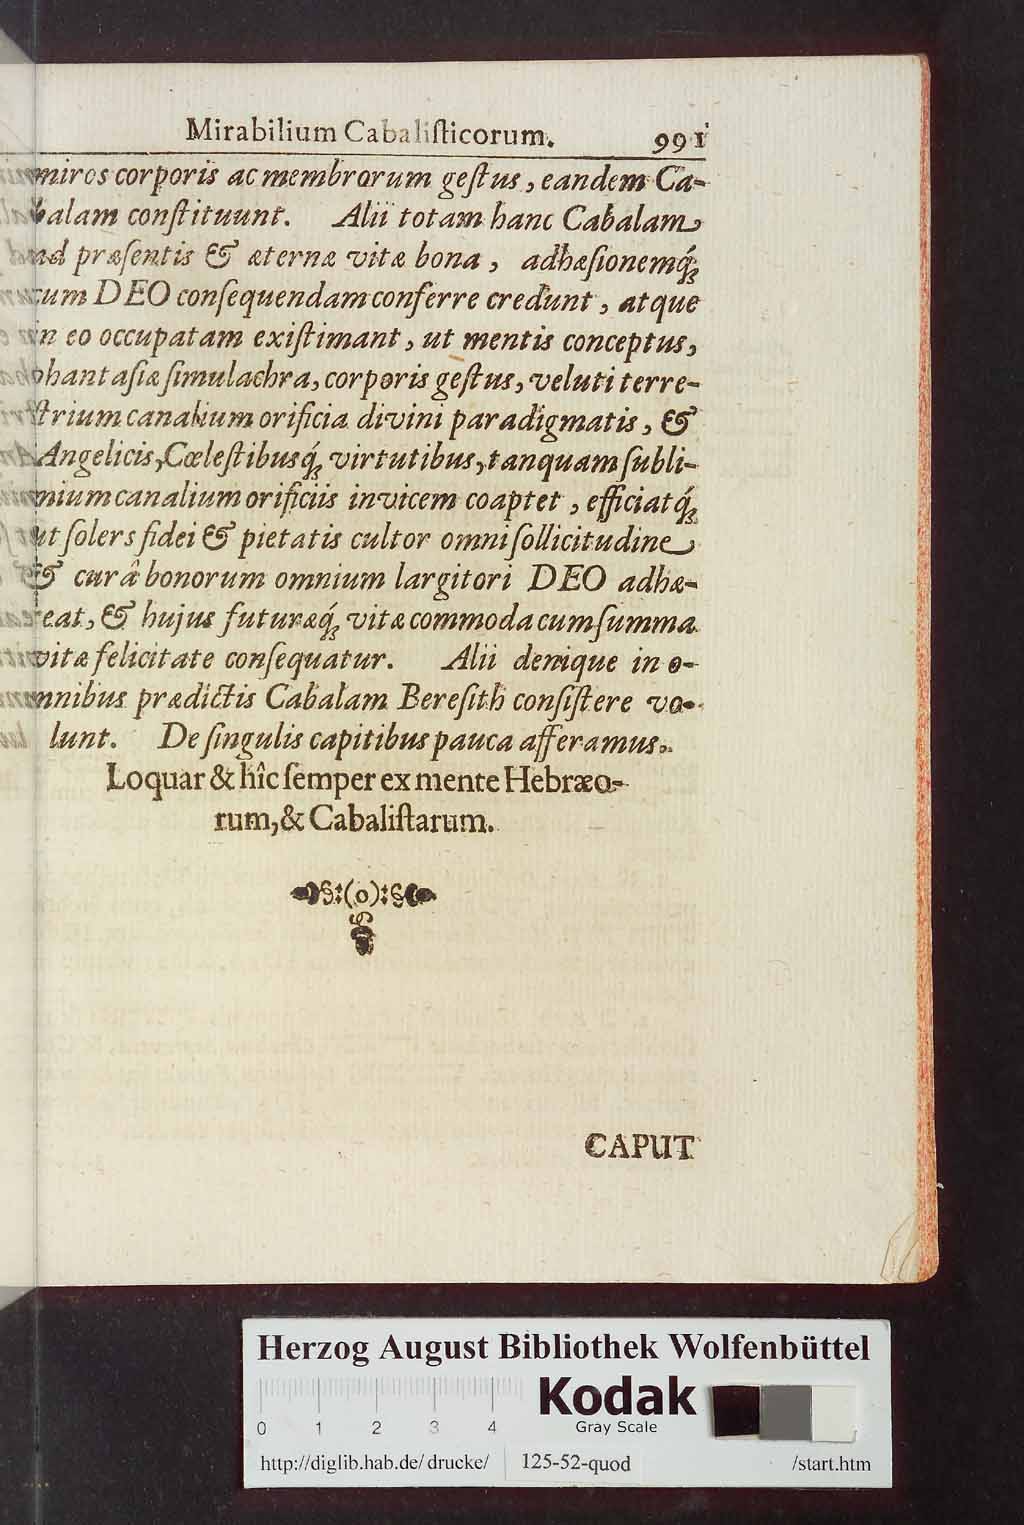 Mirabilium Cabaliſticorum. 991
miros corporis ac membrorum geſtus, eandem Ca-
balam conſtituunt. Alii totam hanc Cabalam
ad præſentis & æternæ vitæ bona, adhæſionemq́;
cum DEO conſequendam conferre credunt, atque
in eo occupatam exiſtimant, ut mentis conceptus,
phantaſiæ ſimulachra, corporis geſtus, veluti terre-
ſtrium canalium orificia divini paradigmatis, &
Angelicis, Cœleſtibusq́; virtutibus, tanquam ſubli-
mium canalium orificiis invicem coaptet, efficiatq́;
ut ſolers fidei & pietatis cultor omni ſollicitudine
& curâ bonorum omnium largitori DEO adhæ-
reat, & hujus futuræq́; vitæ commoda cum ſumma
vitæ felicitate conſequatur. Alii denique in o-
mnibus prædictis Cabalam Bereſith conſiſtere vo-
lunt. De ſingulis capitibus pauca afferamus.
Loquar & hîc ſemper ex mente Hebræo-
rum, & Cabaliſtarum.
§:(o):§
CAPUT
Herzog August Bibliothek Wolfenbüttel
Kodak
Gray Scale
0 1 2 3 4
http://diglib.hab.de/drucke/ 125-52-quod /start.htm